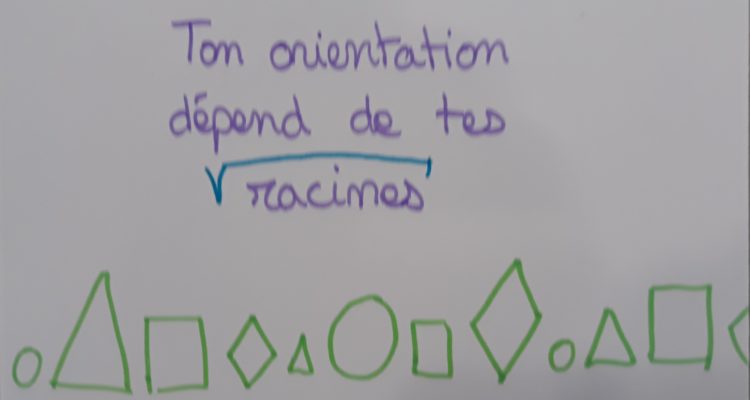 Ton orientation
dépend de tes
racines